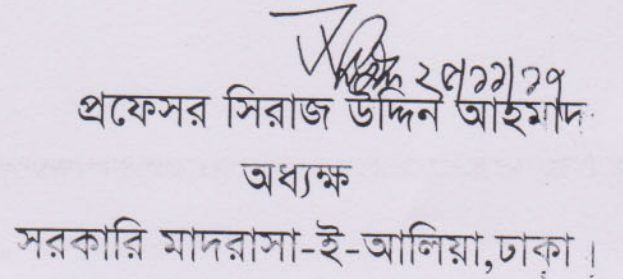 প্রফেসর সিরাজ উদ্দিন আহমাদ
অধ্যক্ষ
সরকারি মাদরাসা-ই-আলিয়া,ঢাকা।